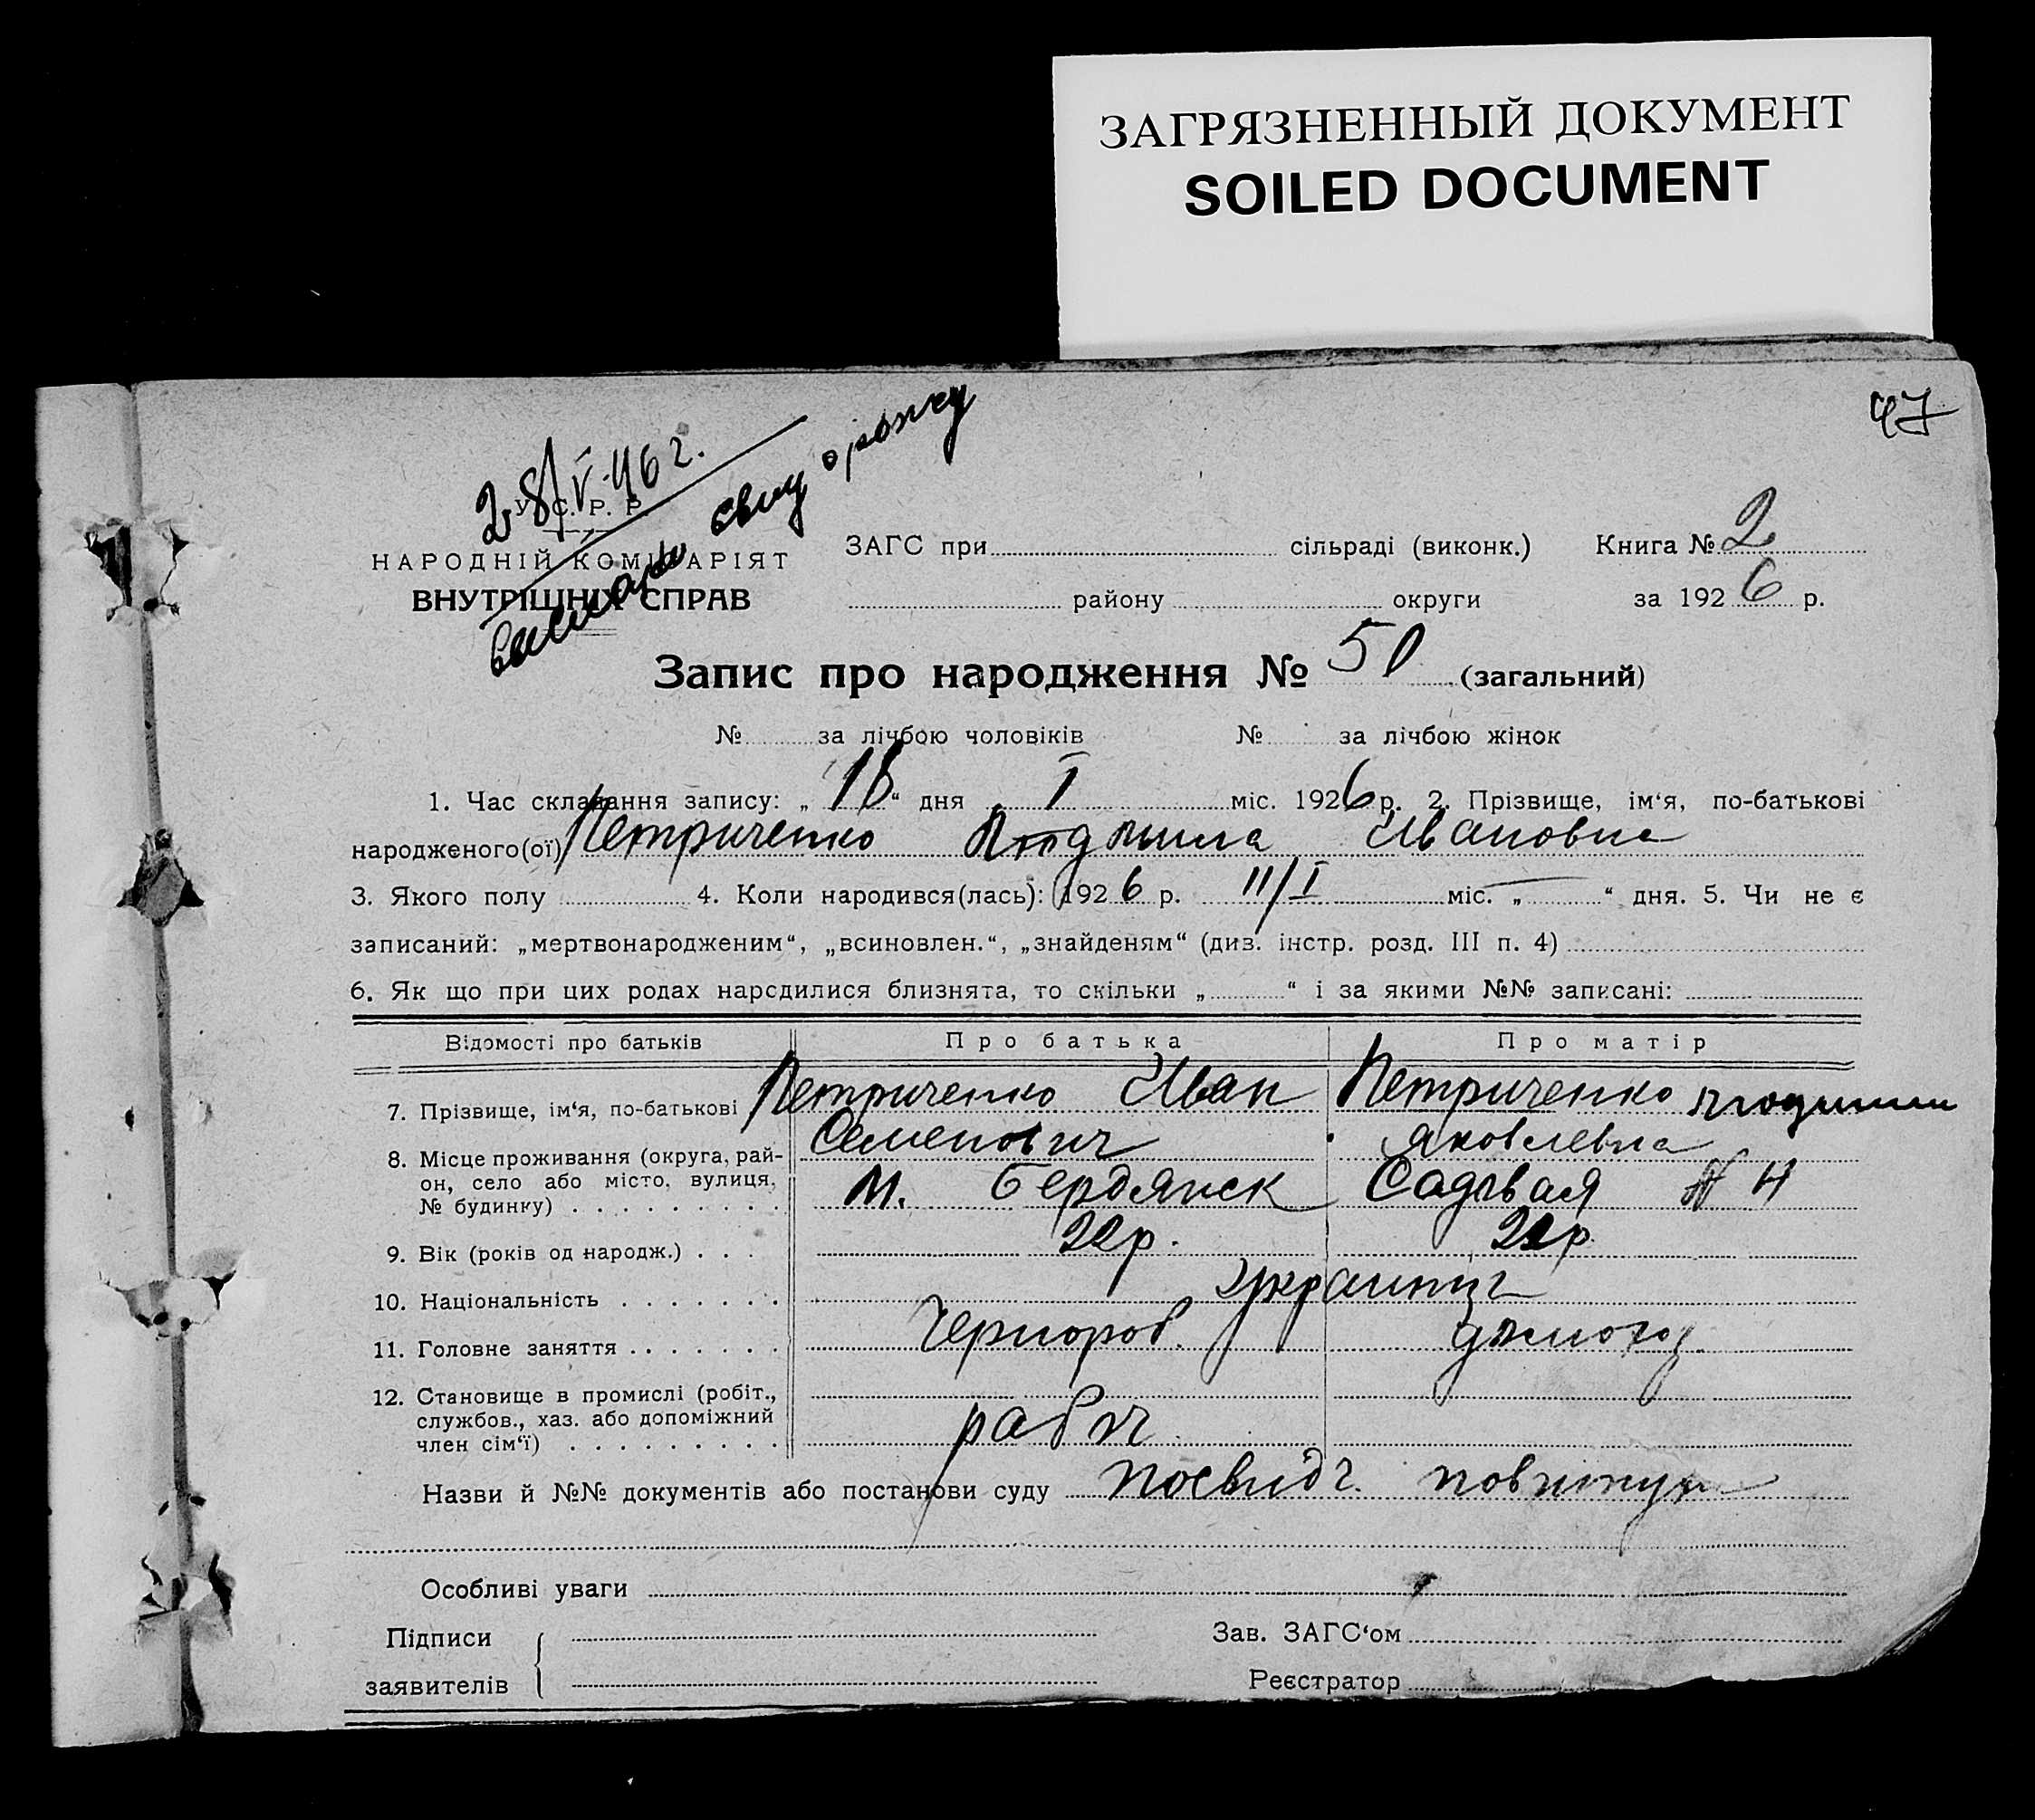 ЗАГРЯЗНЕННЫЙ ДОКУМЕНТ
SOILED DOCUMENT
47
28/V-46 г.
выписано св-у о рожд
У. С. Р. Р.
НАРОДНІЙ КОМІСАРІЯТ
ВНУТРІШНІХ СПРАВ
ЗАГС при сільраді (виконк.) Книга № 2
району округи за 1926 р.
Запис про народження № 50 (загальний)
№ за лічбою чоловіків № за лічбою жінок
1. Час складання запису: „ 16 “ дня I міс. 1926 р. 2. Прізвище, ім‘я, по-батькові
народженого(ої) Петриченко Людмила Ивановна
3. Якого полу 4. Коли народився(лась): 1926 р. 11/I міс. „ “ дня. 5. Чи не є
записаний: „мертвонародженим“, „всиновлен.“, „знайденям“ (див. інстр. розд. III п. 4)
6. Як що при цих родах народилися близнята, то скільки „ “ і за якими №№ записані:
Відомості про батьків Про батька Про матір
7. Прізвище, ім‘я, по-батькові Петриченко Иван Петриченко
Семенович Яковлевна
8. Місце проживання (округа, рай-
он, село або місто, вулиця,
№ будинку) м. Бердянск Садовая № 4
9. Вік (років од народж.) 22 р. 22 р.
10. Національність украинцы
11. Головне заняття Чернороб. домогосп.
12. Становище в промислі (робіт.,
службов., хаз. або допоміжний
член сім‘ї) рабоч
Назви й №№ документів або постанови суду посвидч.
Особливі уваги
Підписи
заявителів
Зав. ЗАГС‘ом
Реєстратор